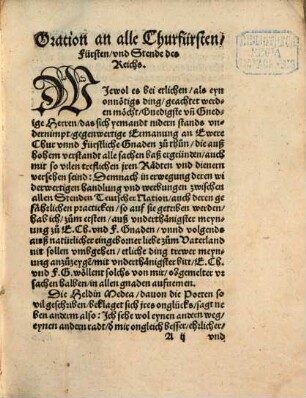 Oration an alle Churfürsten/
Fürsten/vnd Stende des
Reichs.
WJewol es bei etlichen/als eyn
onnötigs ding/geachtet werd
en möcht/Gnedigste vñ Gned
ige Herren/das sich yemandt nidern stands vn
dernimpt/gegenwertige Ermanung an Ewere
Chur vnnd Fürstliche Gnaden zů thůn/die auß
hohem verstandt alle sachen baß ergründen/auch
mit so vilen trefflichen jren Rädten vnd dienern
versehen seind: Demnach in erwegung deren wi
derwertigen handlung vnd werbungen zwischen
allen Stenden Teutscher Nation/auch deren ge
fährlichen practicken/so auf sie getriben werden/
hab ich/zům ersten/auß vnderthänigster meyn
ung zů E.Ch.vnd F. Gnaden/vnnd volgends
auß natürlicher eingeborner liebe zům Vaterland
nit sollen vmbgehen/etliche ding trewer meyn
ung anzůzeygẽ/mit vnderthänigster bitt/E.Ch.
vnd F.G. wöllent solchs von mir/obgemelter vr
sachen halben/in allen gnaden aufnemen.
Die Heldin Medea/dauon die Poeten so
vil geschriben/beklaget sich jres onglücks/sagt ne
ben anderm also: Jch sehe wol eynen andern weg/
eynen andern radt/ď mir ongleich besser/ehrlicher/
A ij vnd